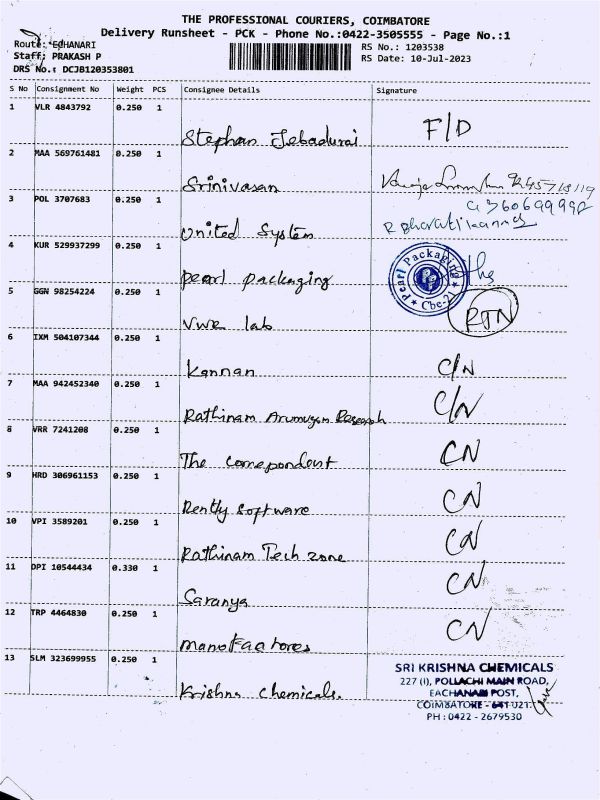 THE PROFESSIONAL COURIERS, COIMBATORE
Delivery Runsheet - PCK - Phone No.:0422-3505555 - Page No.:1
Route: EDHANARI
RS No.: 1203538
Staff: PRAKASH P
RS Date: 10-Jul-2023
DRS No.: DCJB120353801
S No Consignment No Weight PCS Consignee Details Signature
1 VLR 4843792 0.250 1
Stephan Jebadurai F/D
2 MAA 569761481 0.250 1
Srinivasan
3 POL 3707683 0.250 1
United System
R Bharatikannan
4 KUR 529937299 0.250 1
Pearl Packaging
Pearl Packaging
PP
Cbe-21
5 GGN 98254224 0.250 1
VWR lab RTN
6 IXM 504107344 0.250 1
Kannan C/N
7 MAA 942452340 0.250 1
Rathinam Arumugam Research C/N
8 VRR 7241208 0.250 1
The correpondent CN
9 HRD 306961153 0.250 1
Rently Software CN
10 VPI 3589201 0.250 1
Rathinam Tech zone CN
11 DPI 10544434 0.330 1
Saranya CN
12 TRP 4464830 0.250 1
CN
13 SLM 323699955 0.250 1
Krishna Chemicals.
SRI KRISHNA CHEMICALS
227 (I), POLLACHI MAIN ROAD,
EACHANARI POST,
COIMBATORE - 641 021.
PH : 0422 - 2679530